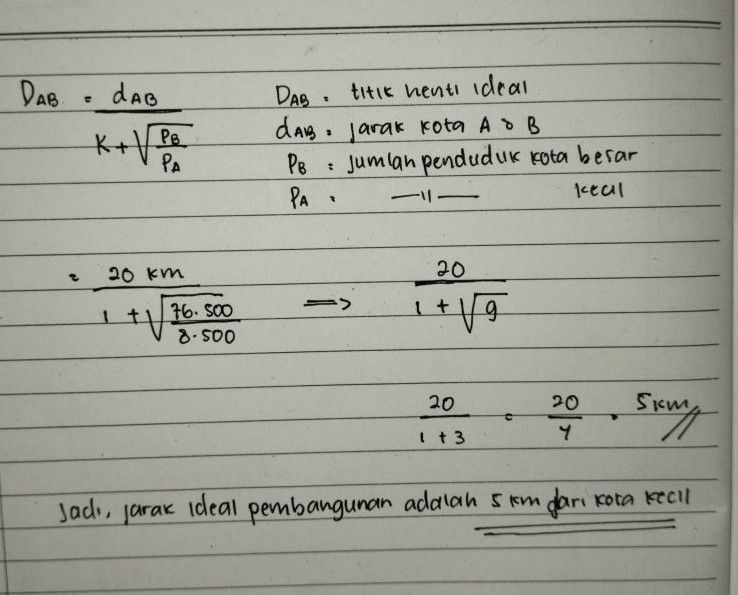 DAB = dAB / K + √PB/PA
DAB = titik henti ideal
dAB = jarak kota A & B
PB = jumlah penduduk kota besar
PA = —〃— kecil
= 20 km / 1 + √76.500/8.500 => 20 / 1 + √9
20 / 1 + 3 = 20 / 4 = 5 km //
Jadi, jarak ideal pembangunan adalah 5 km dari kota kecil